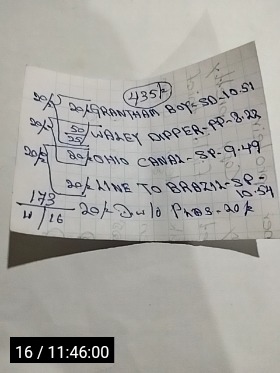 435/-
20/- 20/- GRANTHAM BOY-SD-10.51
20/- 50 WALEY DIPPER-PP-8.22
25
20/- 20/- OHIO CANAL-SP-9.49
20/- LINE TO BRAZIL-SP-10.54
173
11 16 20/- Du/o PKBS-20/-
16 / 11:46:00